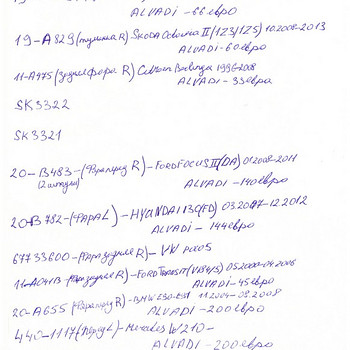 ALVADI - 66 евро
19-A829 (туманка R) SKODA Octavia II (1Z3/1Z5) 10.2008-2013
ALVADI - 60 евро
11-A975 (задне фара R) Citroen Berlingo 1996-2008
ALVADI - 33 евро
SK3322
SK3321
20-B483-(Фара перед R)-FORD FOCUS II (DA) 01.2008-2011
(2 штуки)
ALVADI - 140 евро
20-B782-(ФАРА L)-HYUNDAI I30 (FD) 03.2007-12.2012
ALVADI - 144 евро
67733600-(Фара задние R)-VW
11-A041B-(Фара задние R)-FORD TRANSIT 05.2000-04.2006
ALVADI - 45 евро
20-A655 (Фара перед R)-BMW E30-E31 11.2004-03.2008
ALVADI - 200 евро
440-1117 (перед L)-Mercedes W210-
ALVADI - 200 евро